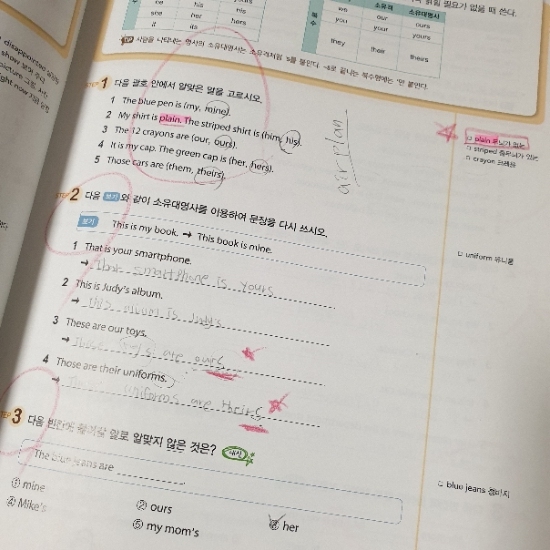 disappointed
show 보여 주다
picture 그림, 사진
right now 지금 당장
수
he his his
she her hers
it its
복수
소유격 소유대명사
we our ours
you your yours
they their theirs
TIP 사람을 나타내는 명사의 소유대명사는 소유격처럼 's를 붙인다. -s로 끝나는 복수형에는 '만 붙인다.
STEP 1 다음 괄호 안에서 알맞은 말을 고르시오.
1 The blue pen is (my, mine).
2 My shirt is plain. The striped shirt is (him, his).
3 The 12 crayons are (our, ours).
4 It is my cap. The green cap is (her, hers).
5 Those cars are (them, theirs).
airplan
plain 무늬가 없는
striped 줄무늬가 있는
crayon 크레용
STEP 2 다음 보기 와 같이 소유대명사를 이용하여 문장을 다시 쓰시오.
보기 This is my book. → This book is mine.
1 That is your smartphone.
→ smartphone is yours
2 This is Judy's album.
→ this album is Judy's
3 These are our toys.
→ These toys are ours
4 Those are their uniforms.
→ Those uniforms are theirs
uniform 유니폼
STEP 3 다음 빈칸에 들어갈 말로 알맞지 않은 것은? 내신
The blue jeans are
① mine
② ours
her
④ Mike's
⑤ my mom's
blue jeans 청바지